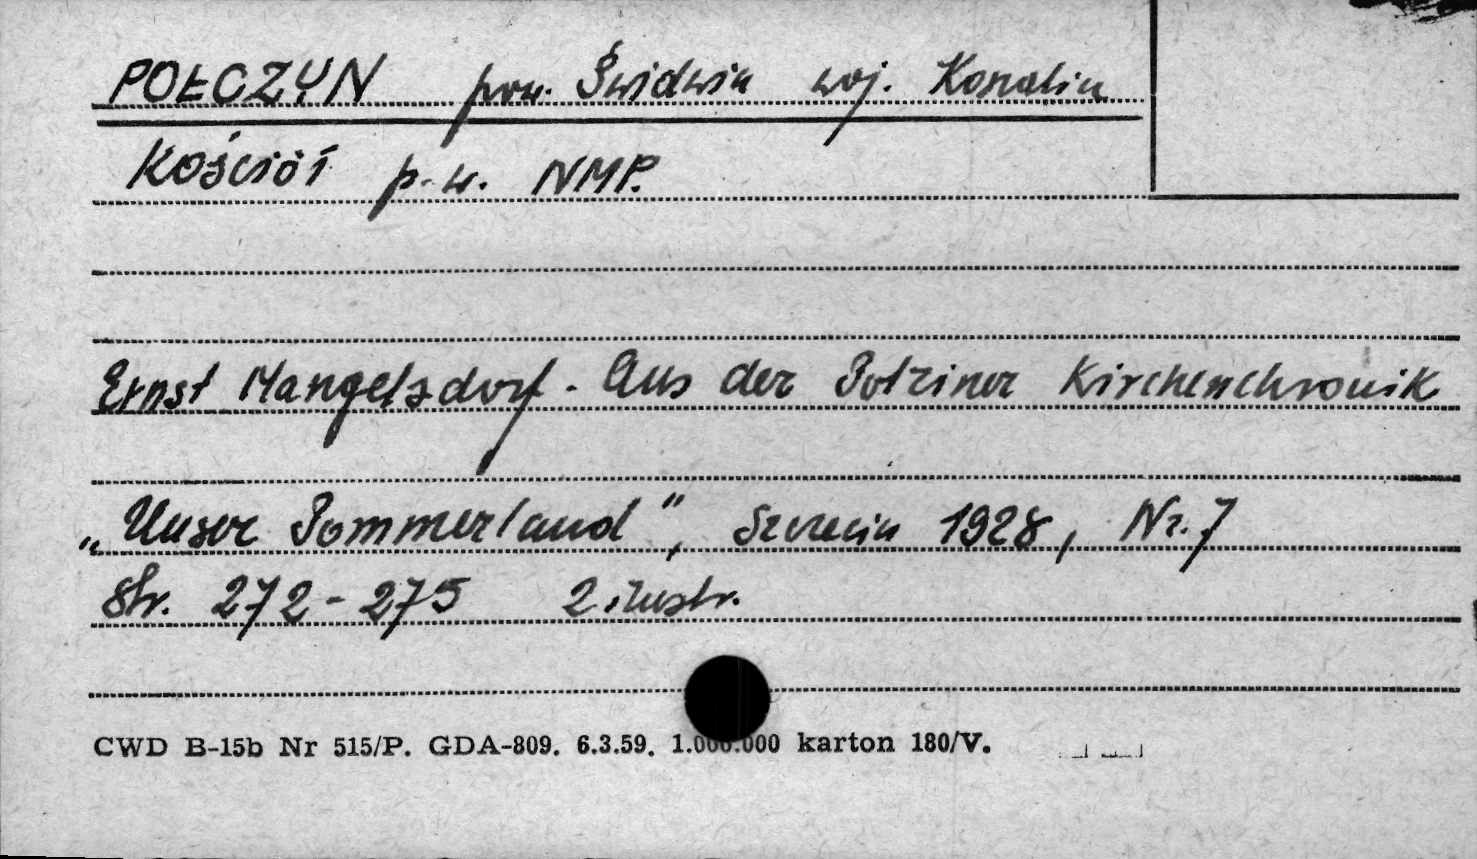 POŁCZYN pow. Świdwin woj. Koszalin
Kościół p.w. NMP.
Ernst Mangelsdorf. Aus der Polziner Kirchenchronik
„Unser Pommerland", Szczecin 1928, Nr. 7
Str. 272-275 2 ilustr.
CWD B-15b Nr 515/P. GDA-809. 6.3.59. 1.000.000 karton 180/V.